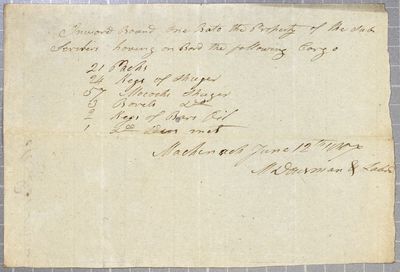 Inward Bound one Boto the Property of the Sub
Scribers having on Bord the following Cargo
21 Packs
24 Kegs of Shuger
57 Mococks Shuger
3 Borels Do
2 Kegs of Bars Oil
1 Do Dear met
Mackinack June 12th
McDowman & Labe